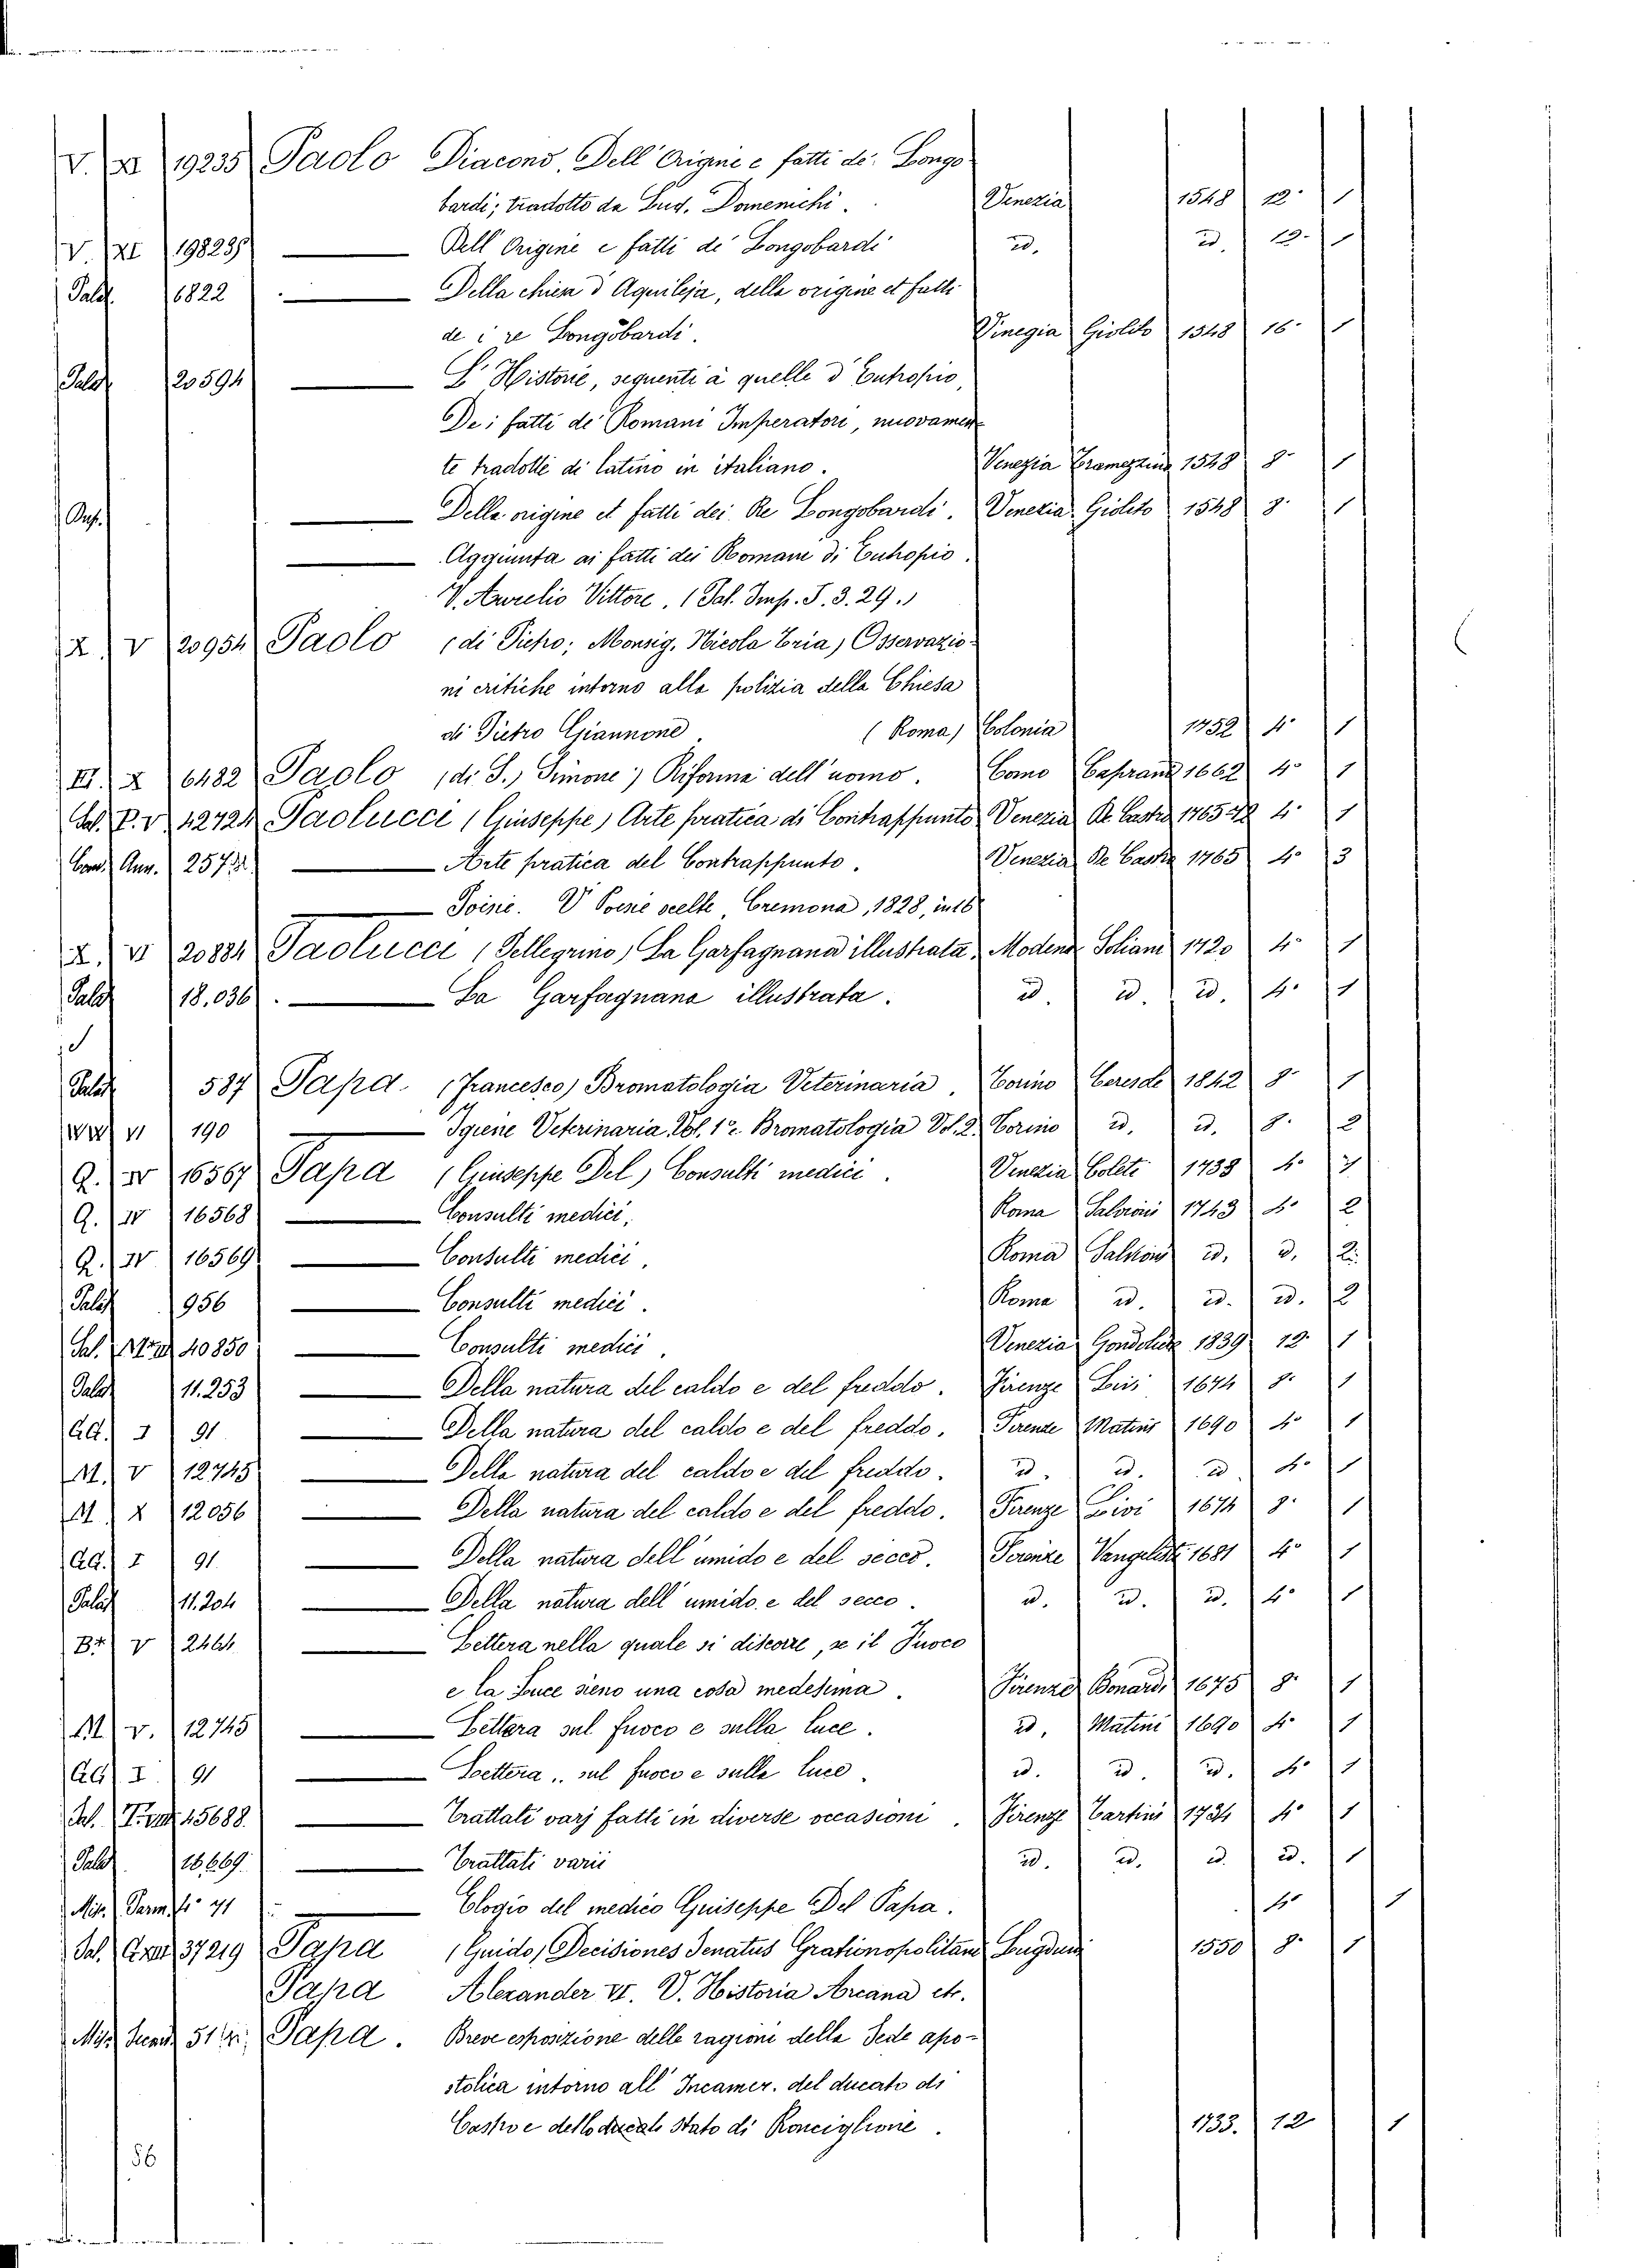 V. XI 19235 Paolo Diacono. Dell'Origine e fatti de' Longo
bardi; tradotto da Lud. Domenichi. Venezia 1548 12º 1
V. XI 19823 Dell'Origine e fatti de' Longobardi id. id. 12. 1
Palat. 16822 Della chiesa d'Aquileja, della origine et fatti
de i re Longobardi. Vinegia Giolito 1548 16º 1
Palat. 20594 L'Historie, sequenti à quelle d'Eutropio,
De i fatti de' Romani Imperatori, nuovamen
te tradotte di latino in italiano. Venezia Tramezzino 1548 8º 1
Della origine et fatti dei Re Longobardi. Venezia Giolito 1548 8. 1
Aggiunta ai fatti dei Romani di Eutropio.
V. Aurelio Vittore. (Pal. Imp. S. 3. 29.)
X. V 20954 Paolo (di Pietro; Monsig. Nicola Eria) Osservazio-
ni critiche intorno alla polizia della Chiesa
di Pietro Giannone. (Roma) Colonia 1752 4º 1
III. X 6482 Paolo (di S.) Simone) Riforma dell'uomo. Como Caprani 1662 4º 1
Sal. P. V. 42724 Paolucci (Giuseppe) Arte pratica di Contrappunto Venezia De Castro 1765 4º 1
Com. Ann. 257 Arte pratica del Contrappunto. Venezia De Castro 1765 4º 3
Poisie. V Poesie scelte, Cremona, 1828, in 16
X. VI 20884 Paolucci (Pellegrino) La Garfagnana illustrata, Modena Soliani 1720 4º 1
Palat. 18.036 La Garfagnana illustrata. id. id. id. 4. 1
Palat. 587 Papa (Francesco) Bromatologia Veterinaria. Torino Ceresole 1842 8º 1
VI 190 Igiene Veterinaria. Vol. 1º e Bromatologia Vol. 2. Torino id. id. 8. 2
Q. IV 16567 Papa (Giuseppe Del) Consulti medici. Venezia Coleti 1738 4.
Q. IV 16568 Consulti medici. Roma Salvioni 1743 4º 2
Q. IV 16569 Consulti medici. Roma Salvioni id. id. 2.
Palat. 956 Consulti medici. Roma id. id. id. 2
Sal. 40850 Consulti medici. Venezia 1839 12. 1
Palat. 11.253 Della natura del caldo e del freddo. Firenze 1674 8. 1
AA. I 91 Della natura del caldo e del freddo. Firenze Matini 1690 4º 1
M. V 12745 Della natura del caldo e del freddo. id. id. id. 4. 1
M. X 12056 Della natura del caldo e del freddo. Firenze Livi 1674 8. 1
AA. I 91. Della natura dell'umido e del secco. Firenze Vangelisti 1681 4º 1
Palat. 11.204 Della natura dell'umido e del secco. id. id. id. 4º 1
V Lettera nella quale si discorre, se il Fuoco
e la Luce sieno una cosa medesima. Firenze Bonardi 1675 8. 1
M. V. 12745 Lettera sul fuoco e sulla luce. id. Matini 1690 4. 1
AA. I. 91 Lettera .. sul fuoco e sulla luce. id. id. id. 4º 1
Sal. 45688. Trattati varj fatti in diverse occasioni. Firenze Tartini 1734 4º 1
Palat. 18669. Trattati varii id. id. id. id. 1
Mis. Parm. fº 71 Elogio del medico Guiseppe Del Papa. 4º 1
Sal. 37219 Papa (Guido) Decisiones Senatus Grationopolitani Lugduni 1550 8. 1
Papa Alexander VI. V. Historia Arcana etc.
Papa. Breve esposizione delle ragioni della Sede apo-
stolica intorno all'Incamer. del ducato di
Castro e dello ducale stato di Ronciglione. 1733. 12 1
56